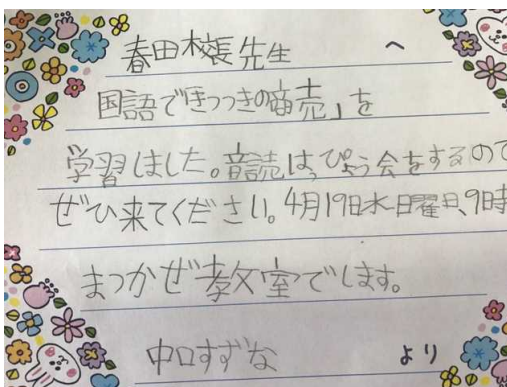 春田校長先生 へ
国語で「きつつきの商売」を
学習しました。音読はっぴょう会をするので
ぜひ来てください。4月19日水日曜日、9時
まつかぜ教室でします。
中口すずな より